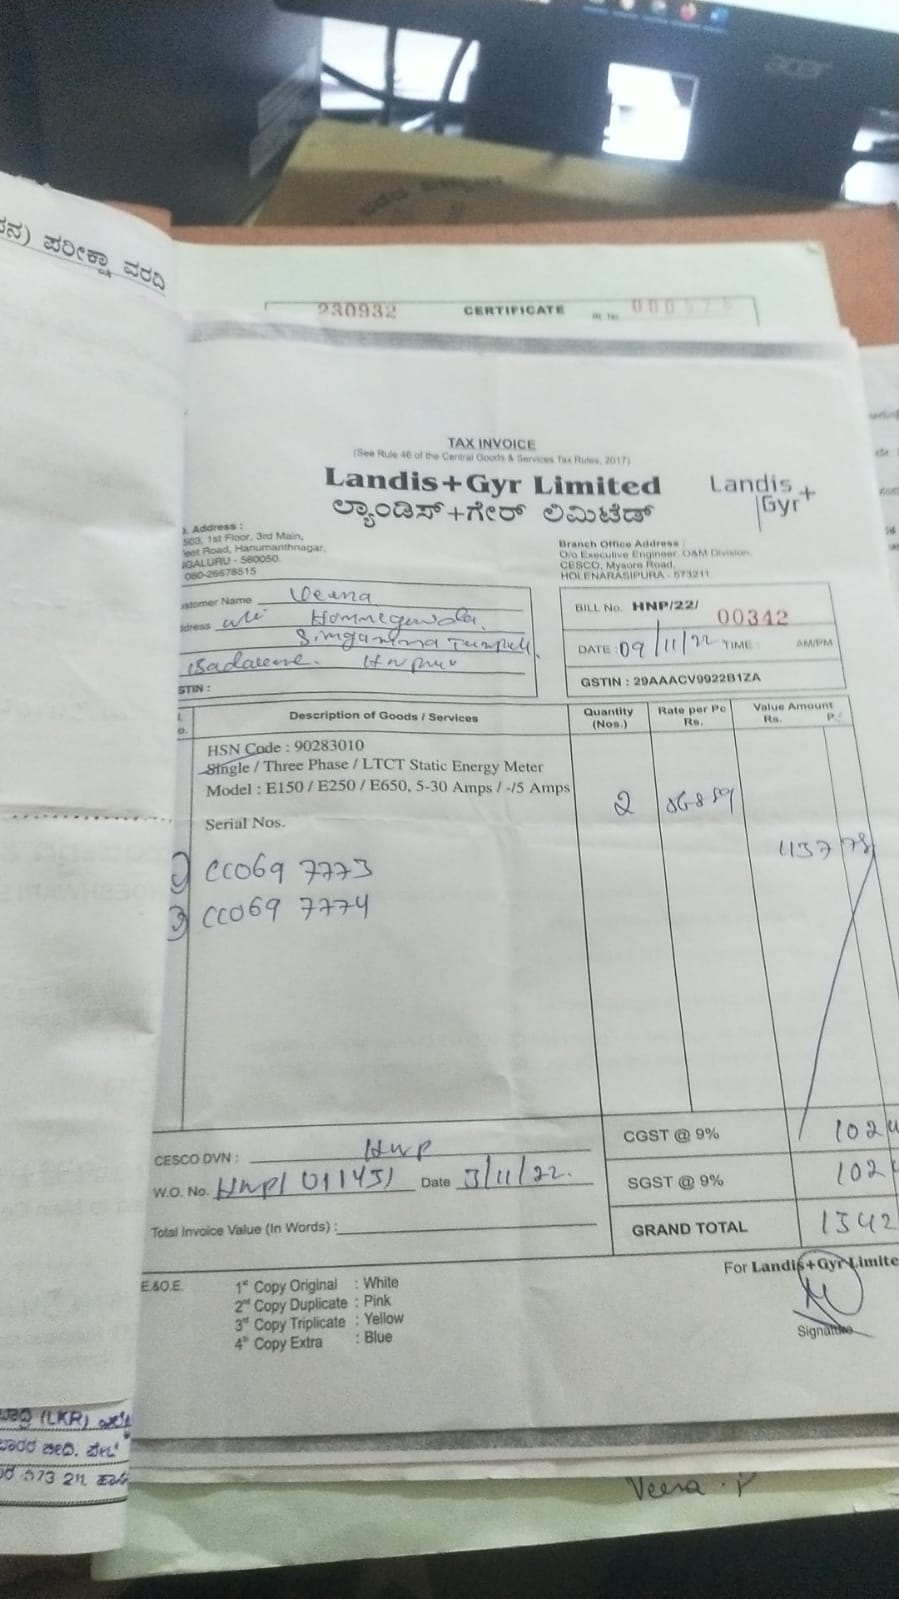 ಪರೀಕ್ಷಾ ವರದಿ
acer
230932 CERTIFICATE
TAX INVOICE
(See Rule 46 of the Central Goods & Services Tax Rules, 2017)
Landis+Gyr Limited
ಲ್ಯಾಂಡಿಸ್+ಗೇರ್ ಲಿಮಿಟೆಡ್
Landis
Gyr+
Address :
503, 1st Floor, 3rd Main,
Road, Hanumanthnagar,
GALURU - 560050.
080-26678515
Branch Office Address :
O/o Executive Engineer, O&M Division,
CESCO, Mysore Road,
HOLENARASIPURA - 573211
Customer Name Veena
BILL No. HNP/22/ 00342
DATE : 09/11/22 TIME : AM/PM
GSTIN : 29AAACV9922B1ZA
STIN :
Description of Goods / Services
Quantity (Nos.)
Rate per Pc Rs.
Value Amount Rs. P.
HSN Code : 90283010
Single / Three Phase / LTCT Static Energy Meter
Model : E150 / E250 / E650, 5-30 Amps / -/5 Amps
2
Serial Nos.
1137 78
CC069 7773
CC069 7774
CGST @ 9% 102
SGST @ 9% 102
GRAND TOTAL 1342
CESCO DVN : HNP
W.O. No. Date 3/11/22.
Total Invoice Value (In Words) :
E.&O.E.
1st Copy Original : White
2nd Copy Duplicate : Pink
3rd Copy Triplicate : Yellow
4th Copy Extra : Blue
For Landis+Gyr Limite
Signature
(LKR)
573 211.
Veena . P